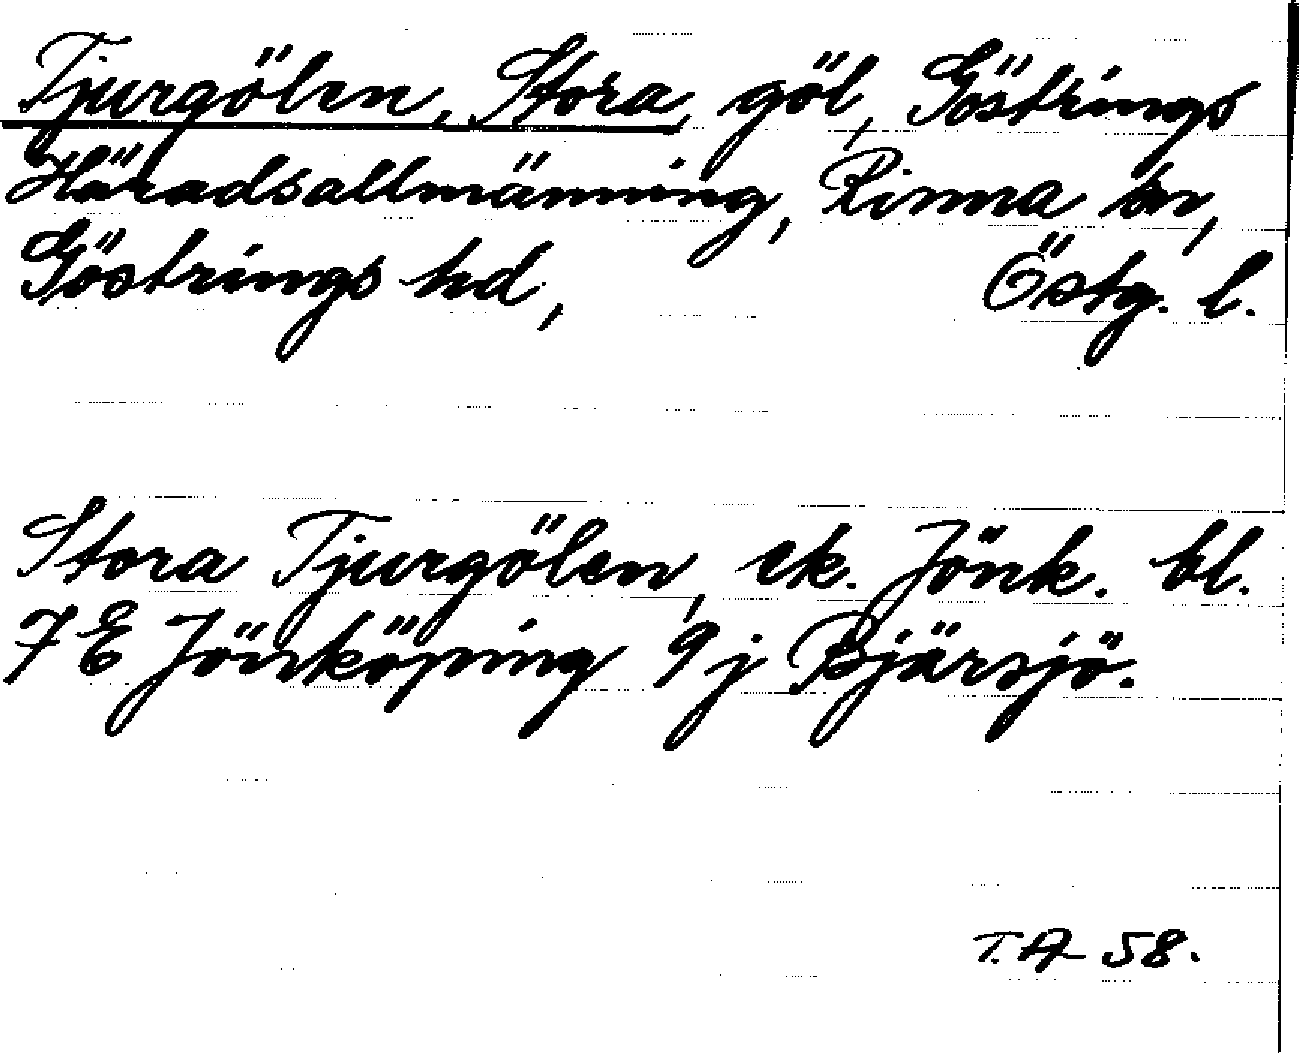 Tjurgölen, Stora, göl, Göstrings
Häradsallmänning, Rinna sn,
Göstrings hd, Östg. l.
Stora Tjurgölen, ek. Jönk. bl.
7 E Jönköping 9 j Bjärsjö.
T. A 58.